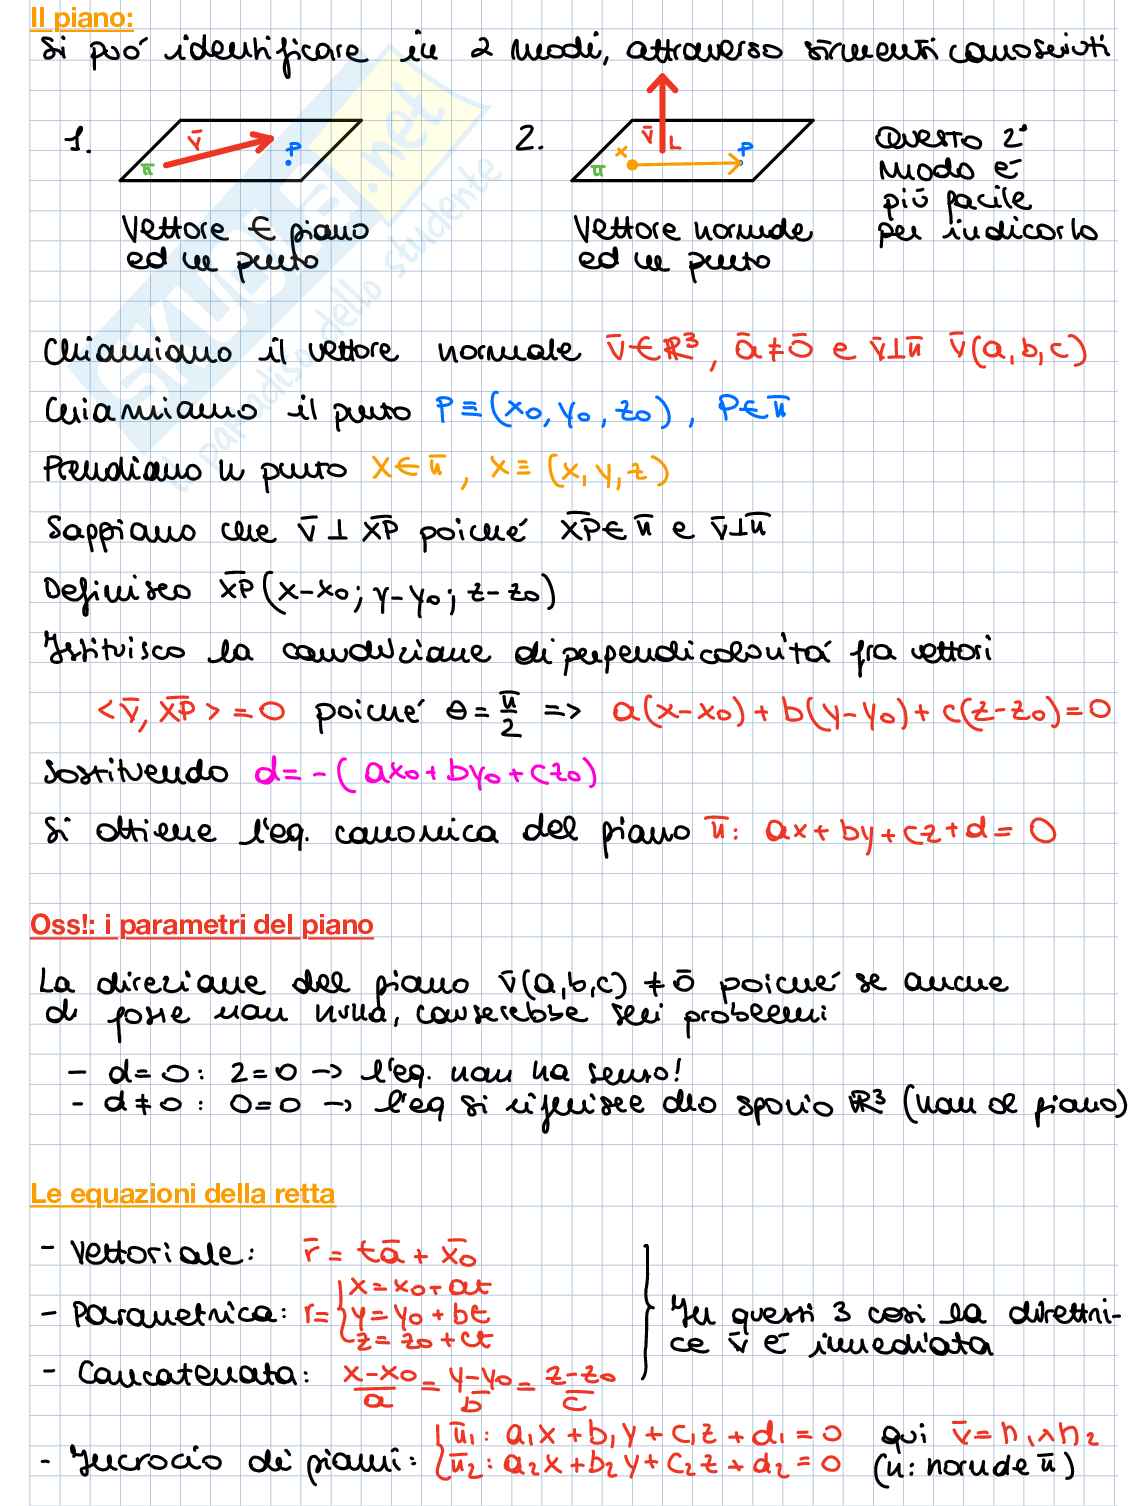 Il piano:
Si può identificare in 2 modi, attraverso strumenti conosciuti
1. v̄ P π̄
2. v̄ L x P π̄
Vettore ∈ piano
ed un punto
Vettore normale
ed un punto
Questo 2°
modo è
più facile
per indicarlo
Chiamiamo il vettore normale v̄∈ℝ³, ā≠ō e v̄⊥π̄ v̄(a,b,c)
Chiamiamo il punto P≡(x₀,y₀,z₀), P∈π̄
Prendiamo un punto X∈π̄, X≡(x,y,z)
Sappiamo che v̄⊥X̄P̄ poiché X̄P̄∈π̄ e v̄⊥π̄
Definisco X̄P̄(x-x₀; y-y₀; z-z₀)
Istituisco la condizione di perpendicolarità fra vettori
<v̄, X̄P̄>=0 poiché θ=π̄/2 => a(x-x₀)+b(y-y₀)+c(z-z₀)=0
Sostituendo d=-(ax₀+by₀+cz₀)
Si ottiene l'eq. canonica del piano π̄: ax+by+cz+d=0
Oss!: i parametri del piano
La direzione del piano v̄(a,b,c)≠ō poiché se anche
di fosse non nulla, causerebbe seri problemi
- d=0: 2=0 -> l'eq. non ha senso!
- d≠0: 0=0 -> l'eq si riferisce allo spazio ℝ³ (non al piano)
Le equazioni della retta
- Vettoriale: r̄=tā+x̄₀
- Parametrica: r={x=x₀+at
y=y₀+bt
z=z₀+ct
- Concatenata: (x-x₀)/a=(y-y₀)/b=(z-z₀)/c
} In questi 3 casi la direttri-
ce v̄ è immediata
- Incrocio dei piani: {π̄₁: a₁x+b₁y+c₁z+d₁=0 qui v̄=n₁∧n₂
π̄₂: a₂x+b₂y+c₂z+d₂=0 (n: normale π̄)
SKUOLA.net
il paradiso dello studente